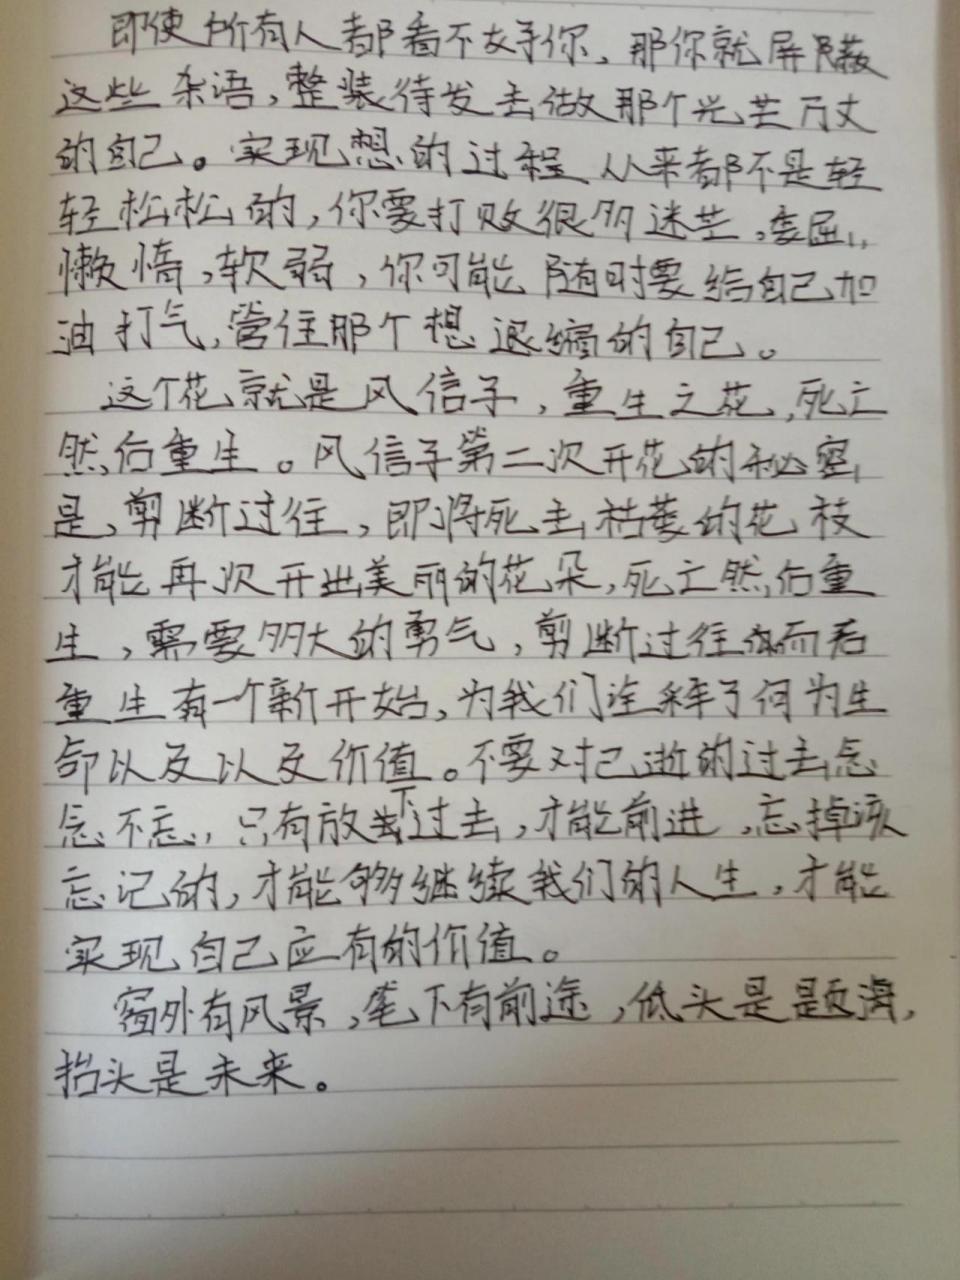 即使所有人都看不好你，那你就屏蔽
这些杂语，整装待发去做那个光芒万丈
的自己。实现想的过程从来都不是轻
轻松松的，你要打败很多迷芒，委屈，
懒惰，软弱，你可能随时要给自己加
油打气，管住那个想退缩的自己。
这个花就是风信子，重生之花，死亡
然后重生。风信子第二次开花的秘密
是，剪断过往，即将死去枯萎的花枝
才能再次开出美丽的花朵，死亡然后重
生，需要多大的勇气，剪断过往而后
重生有一个新开始，为我们诠释了何为生
命以及以及价值。不要对已逝的过去念
念不忘，只有放下过去，才能前进，忘掉该
忘记的，才能够继续我们的人生，才能
实现自己应有的价值。
窗外有风景，笔下有前途，低头是题海，
抬头是未来。